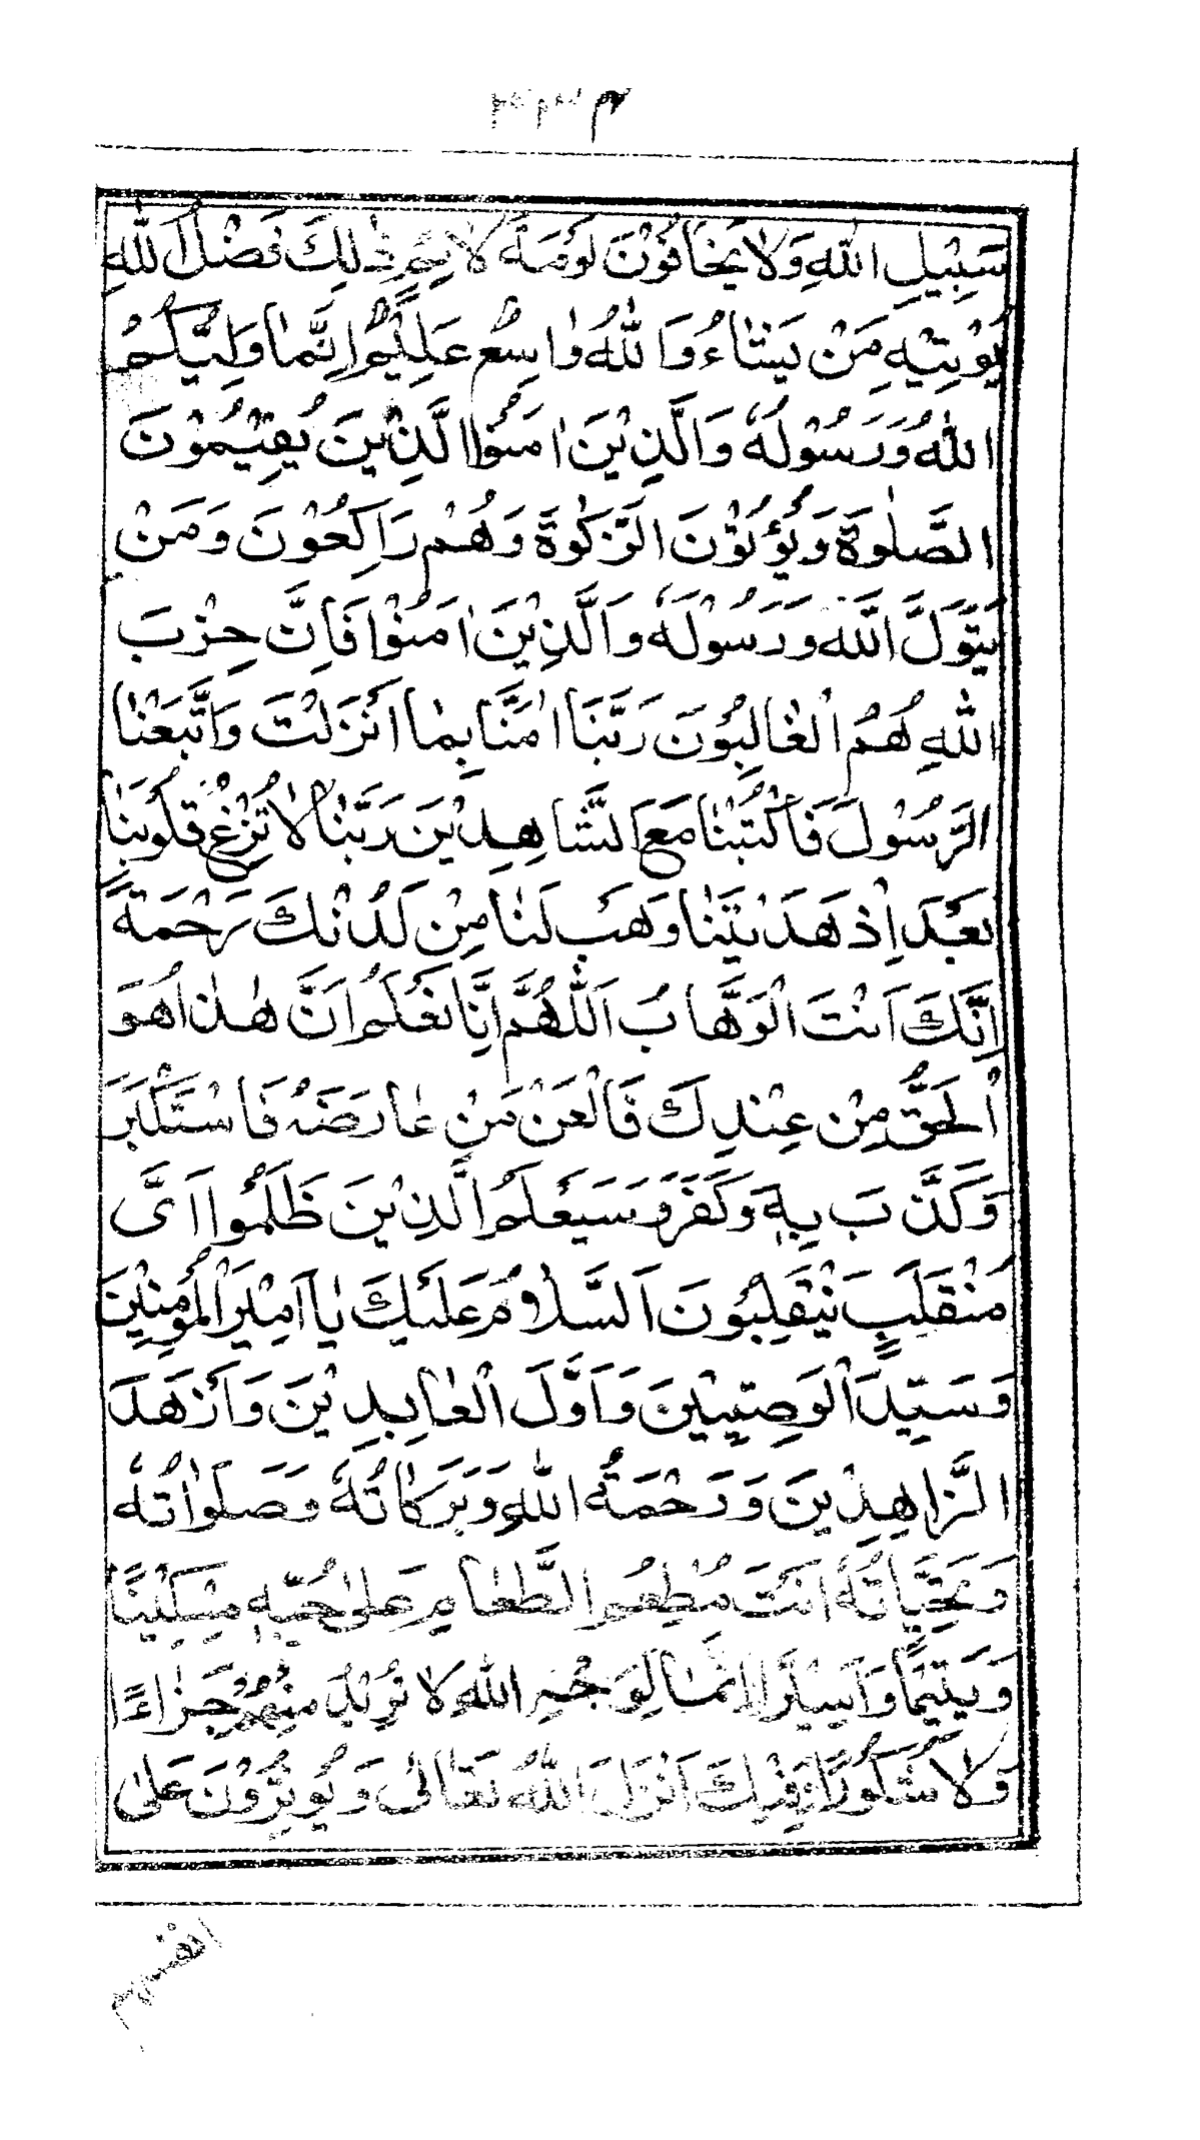 سَبِيْلِ اللّٰهِ وَلَا يَخَافُوْنَ لَوْمَةَ لَائِمٍ ذٰلِكَ فَضْلُ اللّٰهِ
يُؤْتِيْهِ مَنْ يَشَاءُ وَاللّٰهُ وَاسِعٌ عَلِيْمٌ اِنَّمَا وَلِيُّكُمُ
اللّٰهُ وَرَسُوْلُهُ وَالَّذِيْنَ اٰمَنُوا الَّذِيْنَ يُقِيْمُوْنَ
الصَّلٰوةَ وَيُؤْتُوْنَ الزَّكٰوةَ وَهُمْ رَاكِعُوْنَ وَمَنْ
يَتَوَلَّ اللّٰهَ وَرَسُوْلَهُ وَالَّذِيْنَ اٰمَنُوْا فَاِنَّ حِزْبَ
اللّٰهِ هُمُ الْغَالِبُوْنَ رَبَّنَا اٰمَنَّا بِمَا اَنْزَلْتَ وَاتَّبَعْنَا
الرَّسُوْلَ فَاكْتُبْنَا مَعَ الشَّاهِدِيْنَ رَبَّنَا لَا تُزِغْ قُلُوْبَنَا
بَعْدَ اِذْ هَدَيْتَنَا وَهَبْ لَنَا مِنْ لَدُنْكَ رَحْمَةً
اِنَّكَ اَنْتَ الْوَهَّابُ اَللّٰهُمَّ اِنَّا نَعْلَمُ اَنَّ هٰذَا هُوَ
الْحَقُّ مِنْ عِنْدِكَ فَالْعَنْ مَنْ عَارَضَهُ فَاسْتَكْبَرَ
وَكَذَّبَ بِهٖ وَكَفَرَ وَسَيَعْلَمُ الَّذِيْنَ ظَلَمُوا اَىَّ
مُنْقَلَبٍ يَنْقَلِبُوْنَ اَلسَّلَامُ عَلَيْكَ يَا اَمِيْرَ الْمُؤْمِنِيْنَ
وَسَيِّدَ الْوَصِيِّيْنَ وَاَوَّلَ الْعَابِدِيْنَ وَاَزْهَدَ
الزَّاهِدِيْنَ وَرَحْمَةُ اللّٰهِ وَبَرَكَاتُهُ وَصَلَوَاتُهُ
وَتَحِيَّاتُهُ اَنْتَ مُطْعِمُ الطَّعَامِ عَلٰى حُبِّهٖ مِسْكِيْنًا
وَيَتِيْمًا وَاَسِيْرًا اِنَّمَا لِوَجْهِ اللّٰهِ لَا نُرِيْدُ مِنْهُمْ جَزَاءً
وَلَا شُكُوْرًا وَفِيْكَ اَنْزَلَ اللّٰهُ تَعَالٰى وَيُؤْثِرُوْنَ عَلٰى
انفسهم